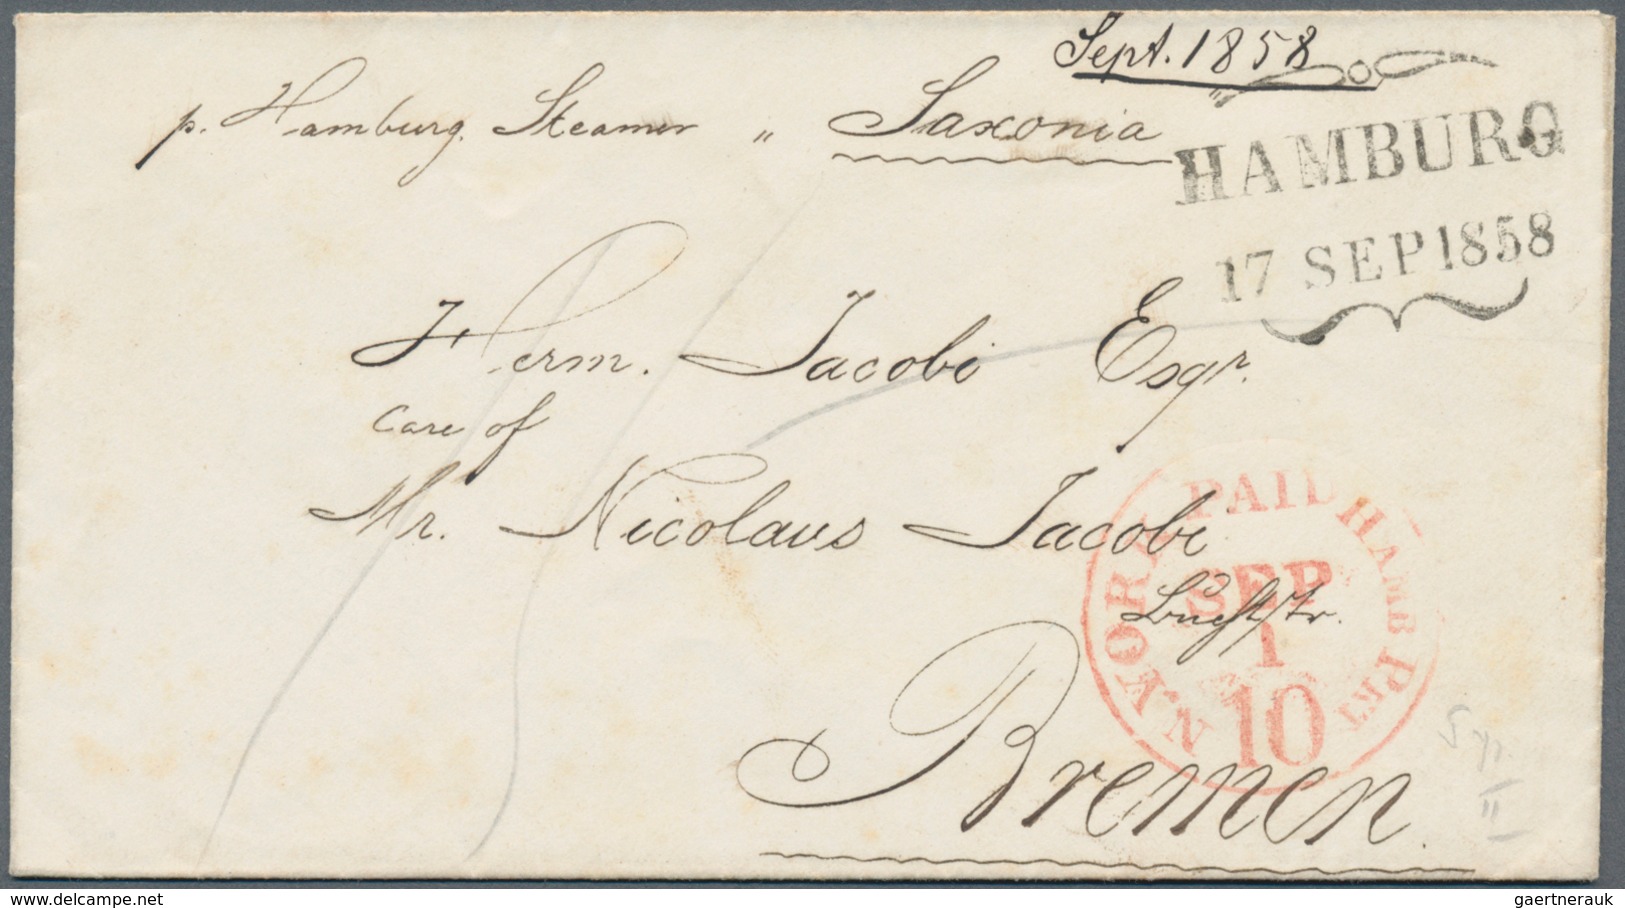 Sept. 1858
p. Hamburg. Steamer " Saxonia "
HAMBURG
17 SEP 1858
Herm. Jacobi Esqr.
care of
Mr. Nicolaus Jacobi
N. YORK PAID HAMB PKT
SEP
1
10
Bremen.
gaertnerauk @ delcampe.net